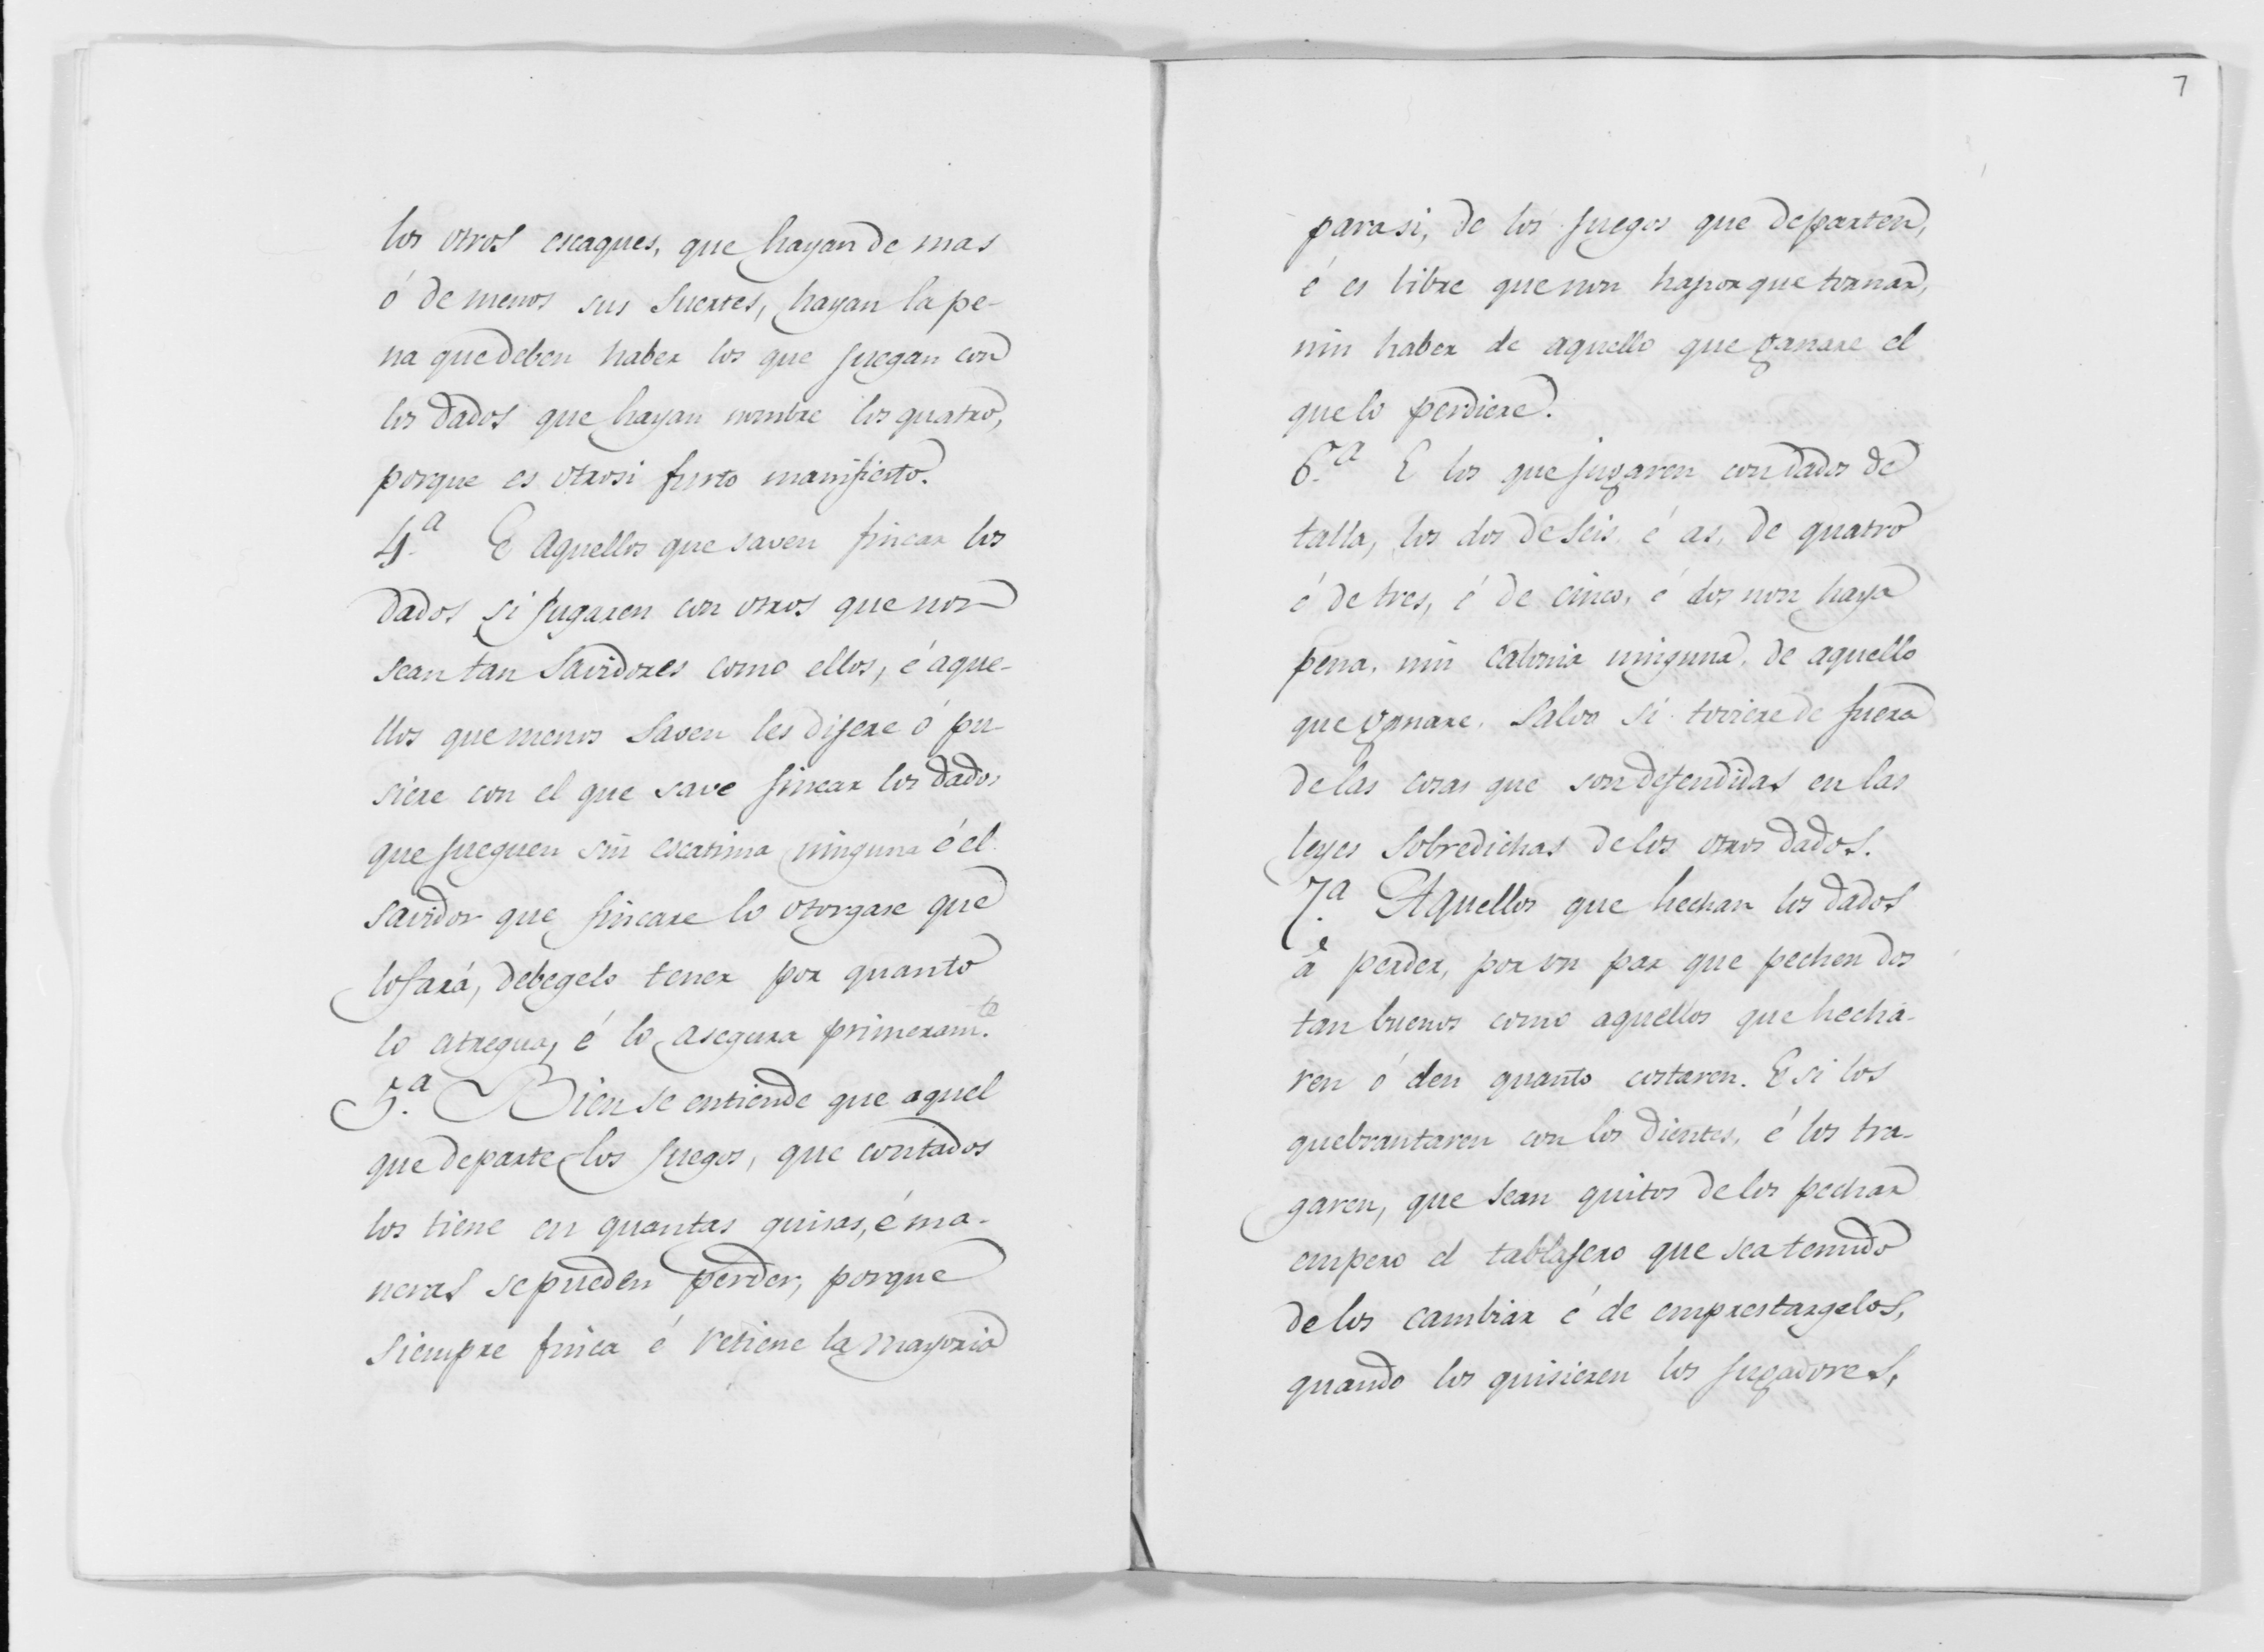 los otros escaques, que hayan de mas
ó de menos sus suertes, hayan la pe-
na que deben haber los que juegan con
los dados que hayan nombre los quatro,
porque es otrosi furto manifiesto.
4.a E Aquellos que saven fincar los
dados si jugaren con otros que non
sean tan Savidores como ellos, é aque-
llos que menos Saven les dijere ó pu-
siere con el que save fincar los dados
que jueguen sin escatima ninguna é el
savidor que fincare lo otorgare que
lo fará, debegelo tener por quanto
lo atregua, é lo asegura primeram.te
5.a Bien se entiende que aquel
que departe los juegos, que contados
los tiene en quantas guisas, é ma-
neras se pueden perder, porque
siempre finca é retiene la mayoria
7
para si, de los juegos que departen,
é es libre que non ha porque tornar,
nin haber de aquello que ganare el
que lo perdiere.
6.a E los que jugaren con dados de
talla, los dos de seis é as, de quatro
é de tres, é de cinco, é dos non haya
pena, nin calonia ninguna, de aquello
que ganare, Salvo si toviere de fuera
de las cosas que son defendidas en las
leyes sobredichas de los otros dados.
7.a Aquellos que hechan los dados
á perder, por un par que pechen dos
tan buenos como aquellos que hecha-
ren ó den quanto costaren. E si los
quebrantaren con los dientes, é los tra-
garen, que sean quitos de los pechar
empero el tablajero que sea tenudo
de los cambiar é de emprestargelos,
quando los quisieren los jugadores,